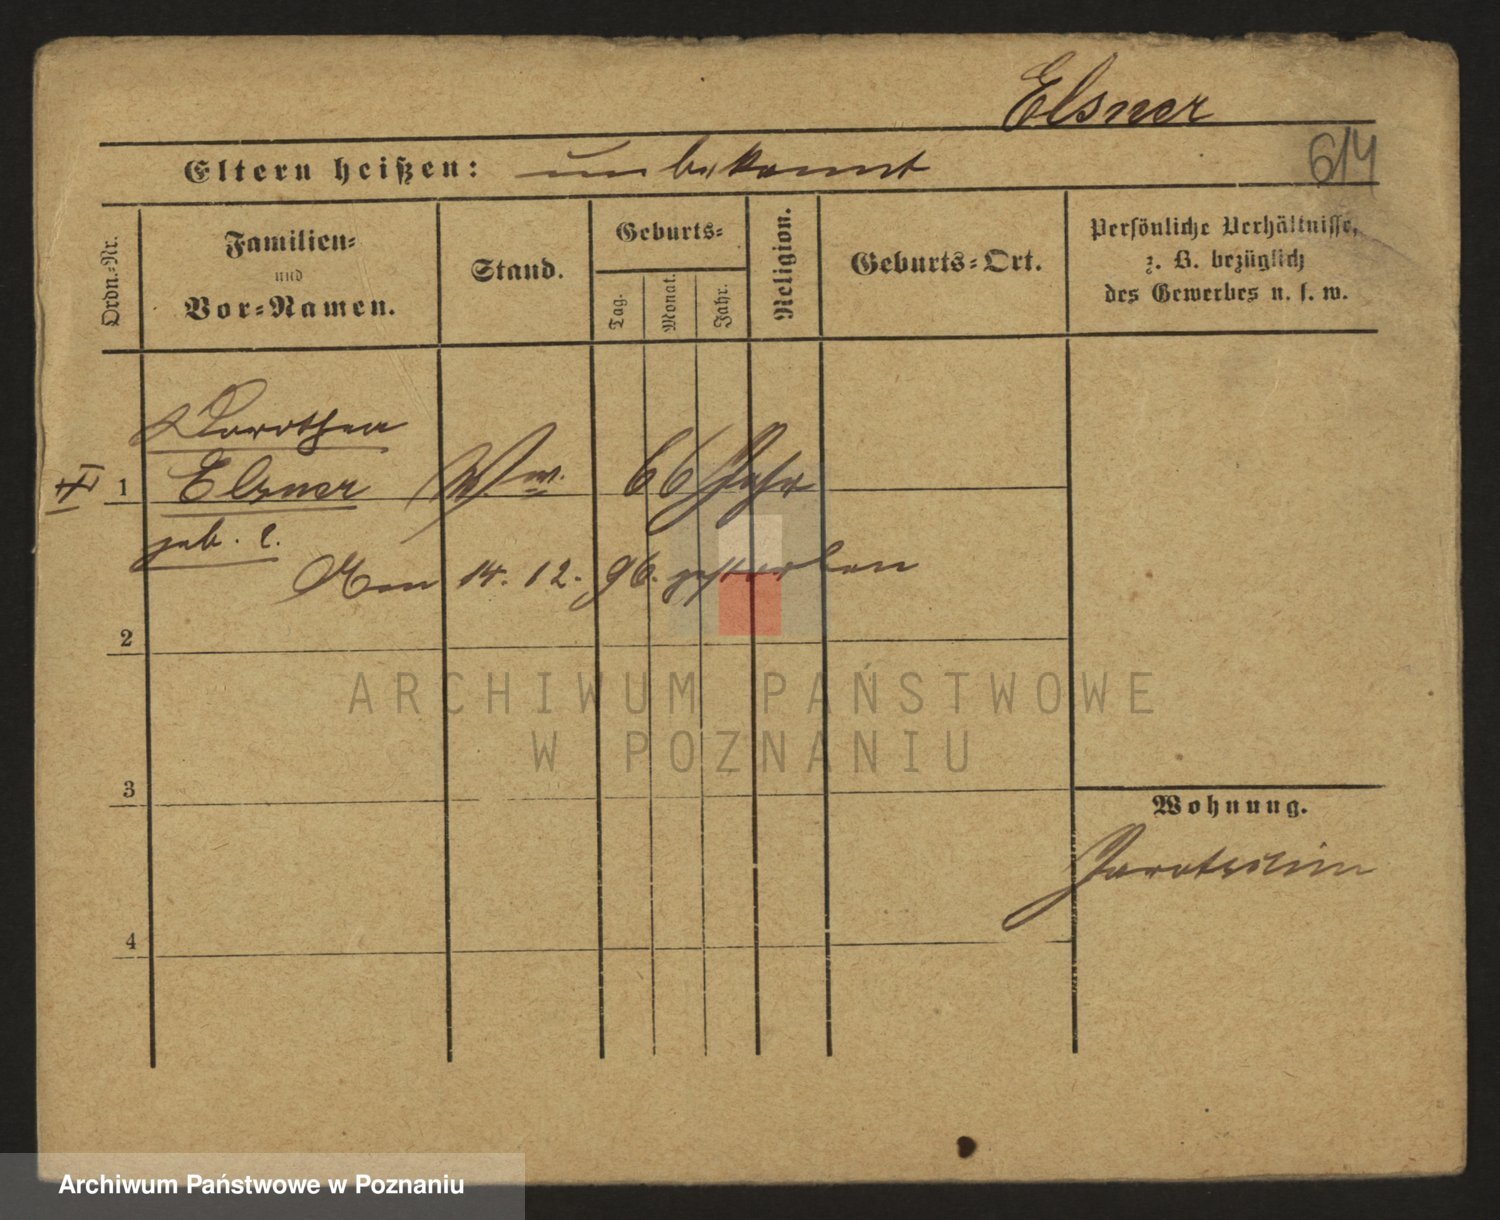 Elsner
Eltern heißen: unbekannt
614
Ordn.=Nr.
Familien=
und
Vor=Namen.
Stand.
Geburts=
Tag.
Monat.
Jahr.
Religion.
Geburts=Ort.
Persönliche Verhältnisse,
z. B. bezüglich
des Gewerbes u. s. w.
Dorothea
1 Elsner Ww. 66 Jahr
geb.
Am 14. 12. 96. gestorben
2
3
4
Wohnung.
Jarotschin
ARCHIWUM PAŃSTWOWE
W POZNANIU
Archiwum Państwowe w Poznaniu